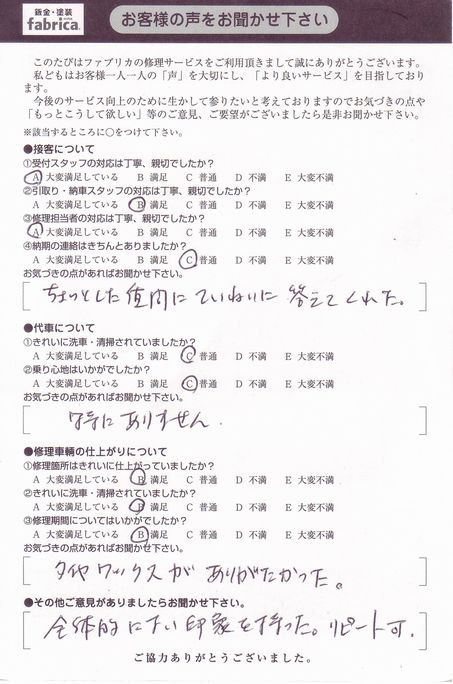 鈑金・塗装
fabrica.
お客様の声をお聞かせ下さい
このたびはファブリカの修理サービスをご利用頂きまして誠にありがとうございます。
私どもはお客様一人一人の「声」を大切にし、「より良いサービス」を目指しており
ます。
今後のサービス向上のために生かして参りたいと考えておりますのでお気づきの点や
「もっとこうして欲しい」等のご意見、ご要望がございましたら是非お聞かせ下さい。
※該当するところに○をつけて下さい。
●接客について
①受付スタッフの対応は丁寧、親切でしたか?
A 大変満足している B 満足 C 普通 D 不満 E 大変不満
②引取り・納車スタッフの対応は丁寧、親切でしたか?
A 大変満足している B 満足 C 普通 D 不満 E 大変不満
③修理担当者の対応は丁寧、親切でしたか?
A 大変満足している B 満足 C 普通 D 不満 E 大変不満
④納期の連絡はきちんとありましたか?
A 大変満足している B 満足 C 普通 D 不満 E 大変不満
お気づきの点があればお聞かせ下さい。
ちょっとした質問にていねいに答えてくれた。
●代車について
①きれいに洗車・清掃されていましたか?
A 大変満足している B 満足 C 普通 D 不満 E 大変不満
②乗り心地はいかがでしたか?
A 大変満足している B 満足 C 普通 D 不満 E 大変不満
お気づきの点があればお聞かせ下さい。
特にありません.
●修理車輌の仕上がりについて
①修理箇所はきれいに仕上がっていましたか?
A 大変満足している B 満足 C 普通 D 不満 E 大変不満
②きれいに洗車・清掃されていましたか?
A 大変満足している B 満足 C 普通 D 不満 E 大変不満
③修理期間についてはいかがでしたか?
A 大変満足している B 満足 C 普通 D 不満 E 大変不満
お気づきの点があればお聞かせ下さい。
タイヤワックスがありがたかった。
●その他ご意見がありましたらお聞かせ下さい。
全体的に良い印象を持った。リピート可.
ご協力ありがとうございました。